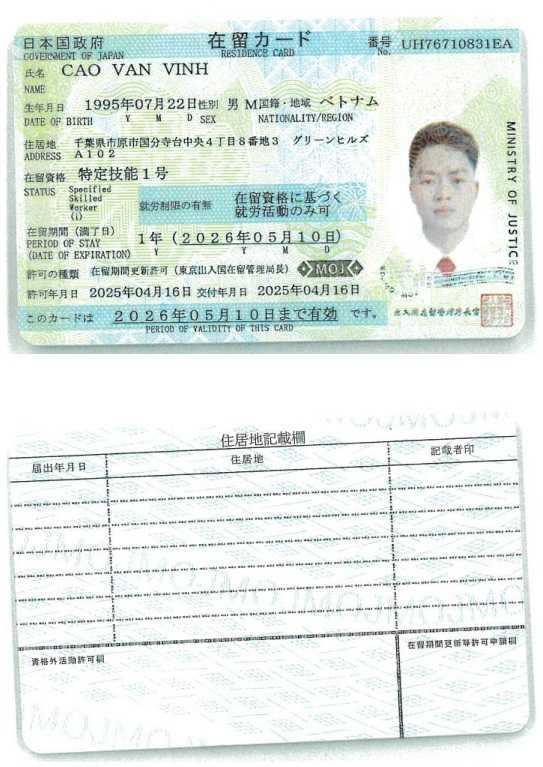 日本国政府 在留カード 番号 UH76710831EA
GOVERNMENT OF JAPAN RESIDENCE CARD No.
氏名 CAO VAN VINH
NAME
生年月日 1995年07月22日 性別 男 M 国籍・地域 ベトナム
DATE OF BIRTH Y M D SEX NATIONALITY/REGION
住居地 千葉県市原市国分寺台中央4丁目8番地3 グリーンヒルズ
ADDRESS A102
在留資格 特定技能1号
STATUS Specified
Skilled
Worker
(i)
就労制限の有無 在留資格に基づく
就労活動のみ可
在留期間(満了日) 1年(2026年05月10日)
PERIOD OF STAY
(DATE OF EXPIRATION) Y Y M D
許可の種類 在留期間更新許可(東京出入国在留管理局長) MOJ
許可年月日 2025年04月16日 交付年月日 2025年04月16日
このカードは 2026年05月10日まで有効 です。
PERIOD OF VALIDITY OF THIS CARD
MINISTRY OF JUSTICE
出入国在留管理庁長官
住居地記載欄
届出年月日 住居地 記載者印
資格外活動許可欄 在留期間更新等許可申請欄